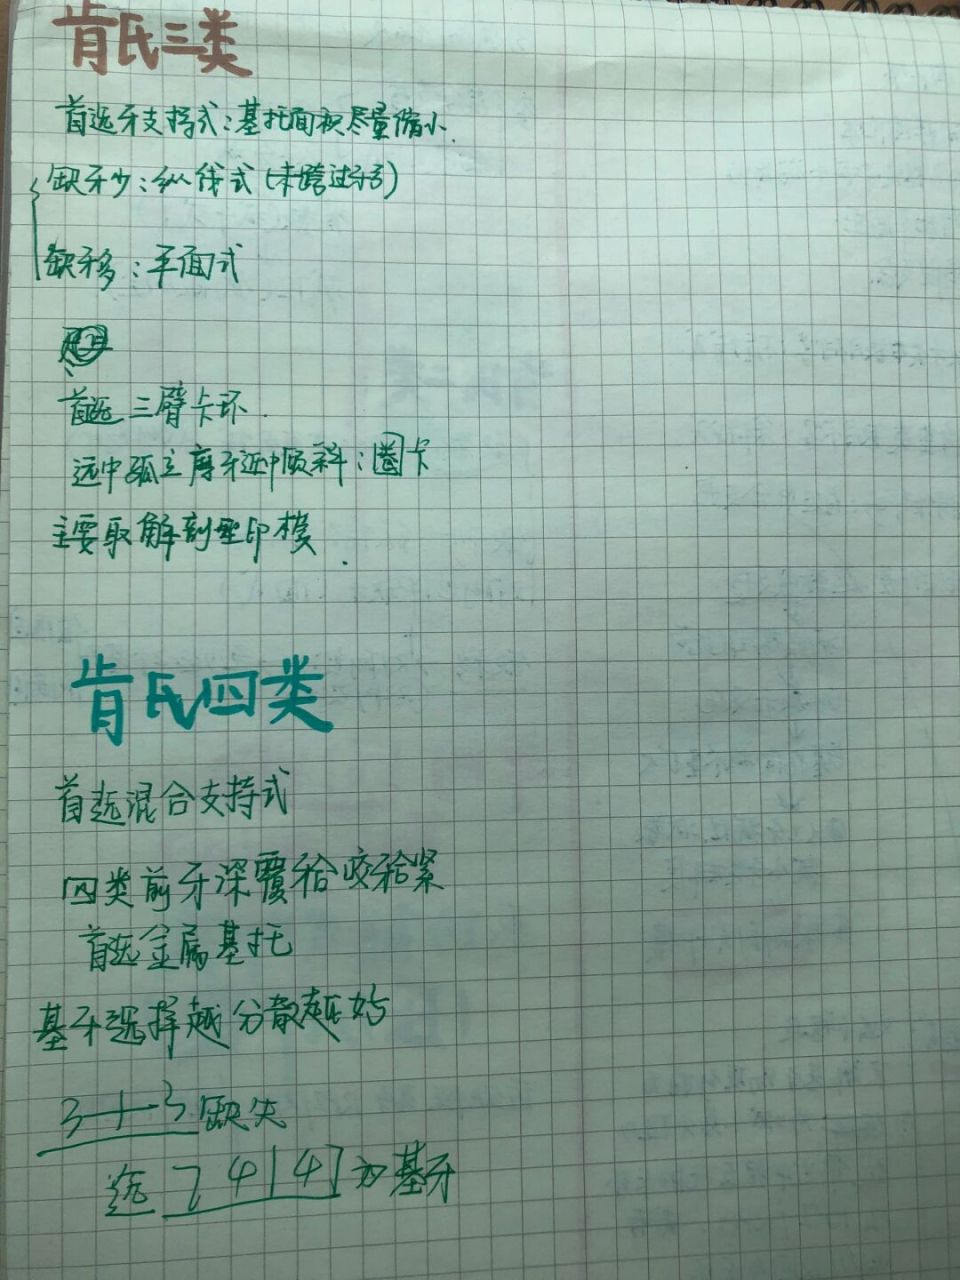 肯氏三类
首选牙支持式：基托面积尽量缩小.
缺牙少：纵线式(未跨过牙弓)
缺牙多：平面式
首选三臂卡环.
远中孤立磨牙近中倾斜：圈卡
主要取解剖型印模.
肯氏四类
首选混合支持式
四类前牙深覆𬌗咬𬌗紧
首选金属基托
基牙选择越分散越好
3—|—3缺失
选 7 4|4 7 为基牙